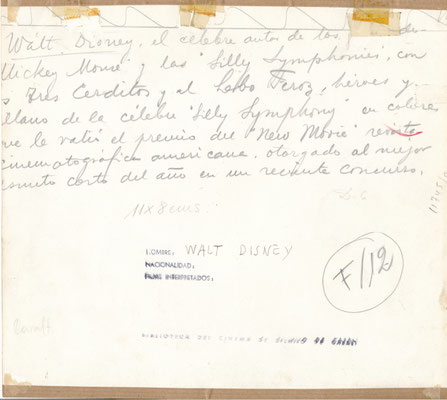 Walt Disney, el célebre autor de las
Mickey Mouse y las "Silly Symphonies, con
s tres Cerditos y al Lobo Feroz, héroes y
illano de la célebre "Silly Symphony" en colores
ue le valió el premio del "New Movie" revista
cinematográfica americana, otorgado al mejor
asunto corto del año en un reciente concurso.
11x8 cms.
NOMBRE: WALT DISNEY
NACIONALIDAD:
FILMS INTERPRETADOS:
F/112
BIBLIOTECA DEL CINEMA DE